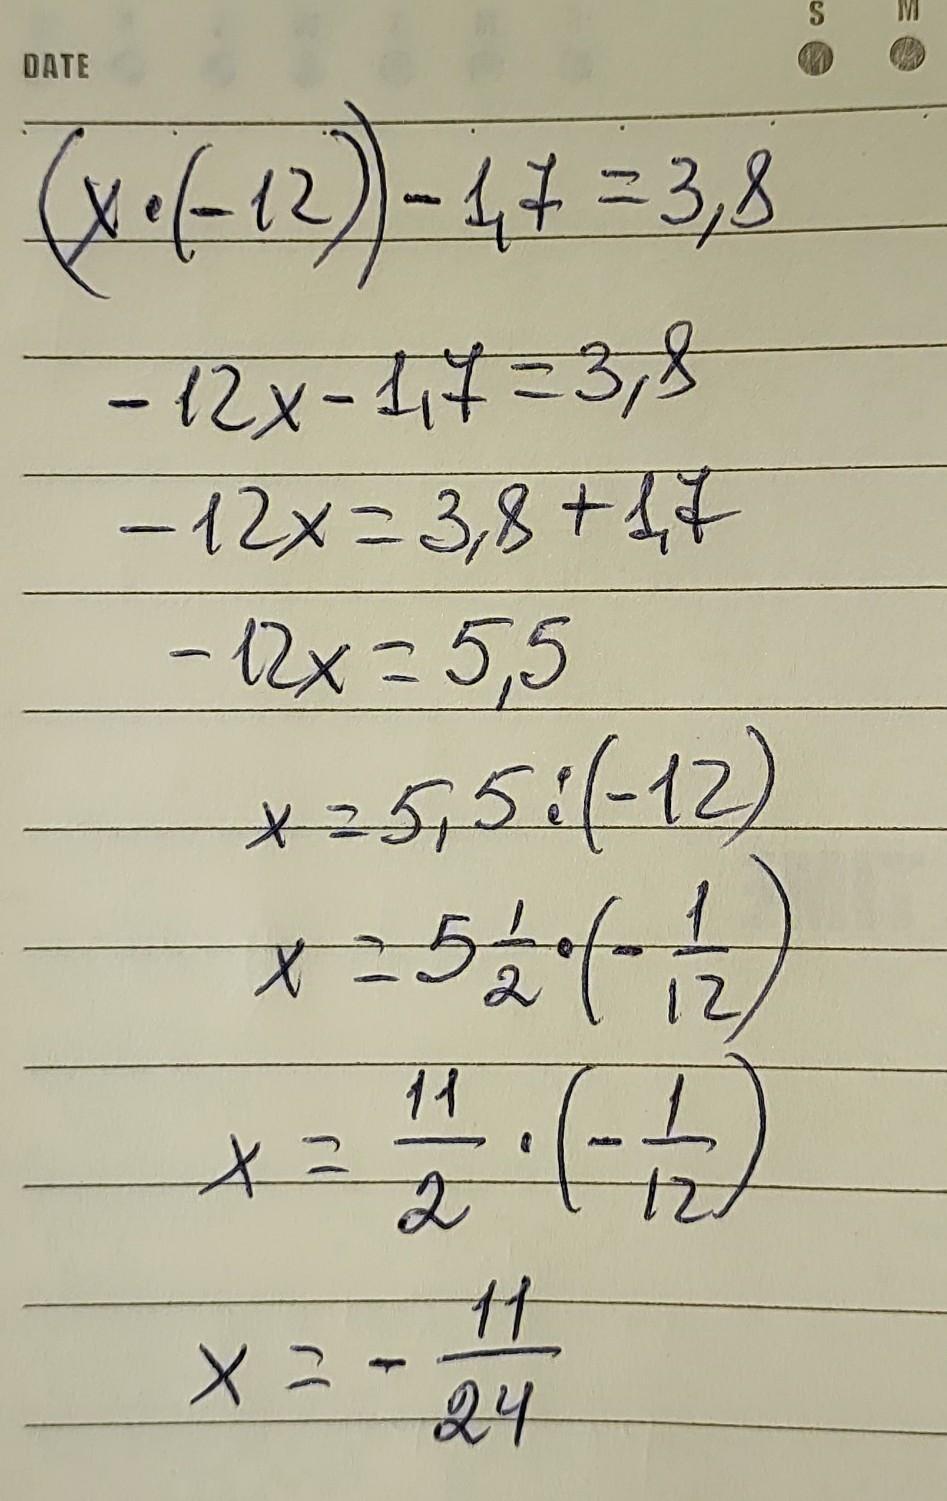 S M
DATE
(x·(-12))-1,7=3,8
-12x-1,7=3,8
-12x=3,8+1,7
-12x=5,5
x=5,5:(-12)
x=5 1/2·(-1/12)
x=11/2·(-1/12)
x=-11/24